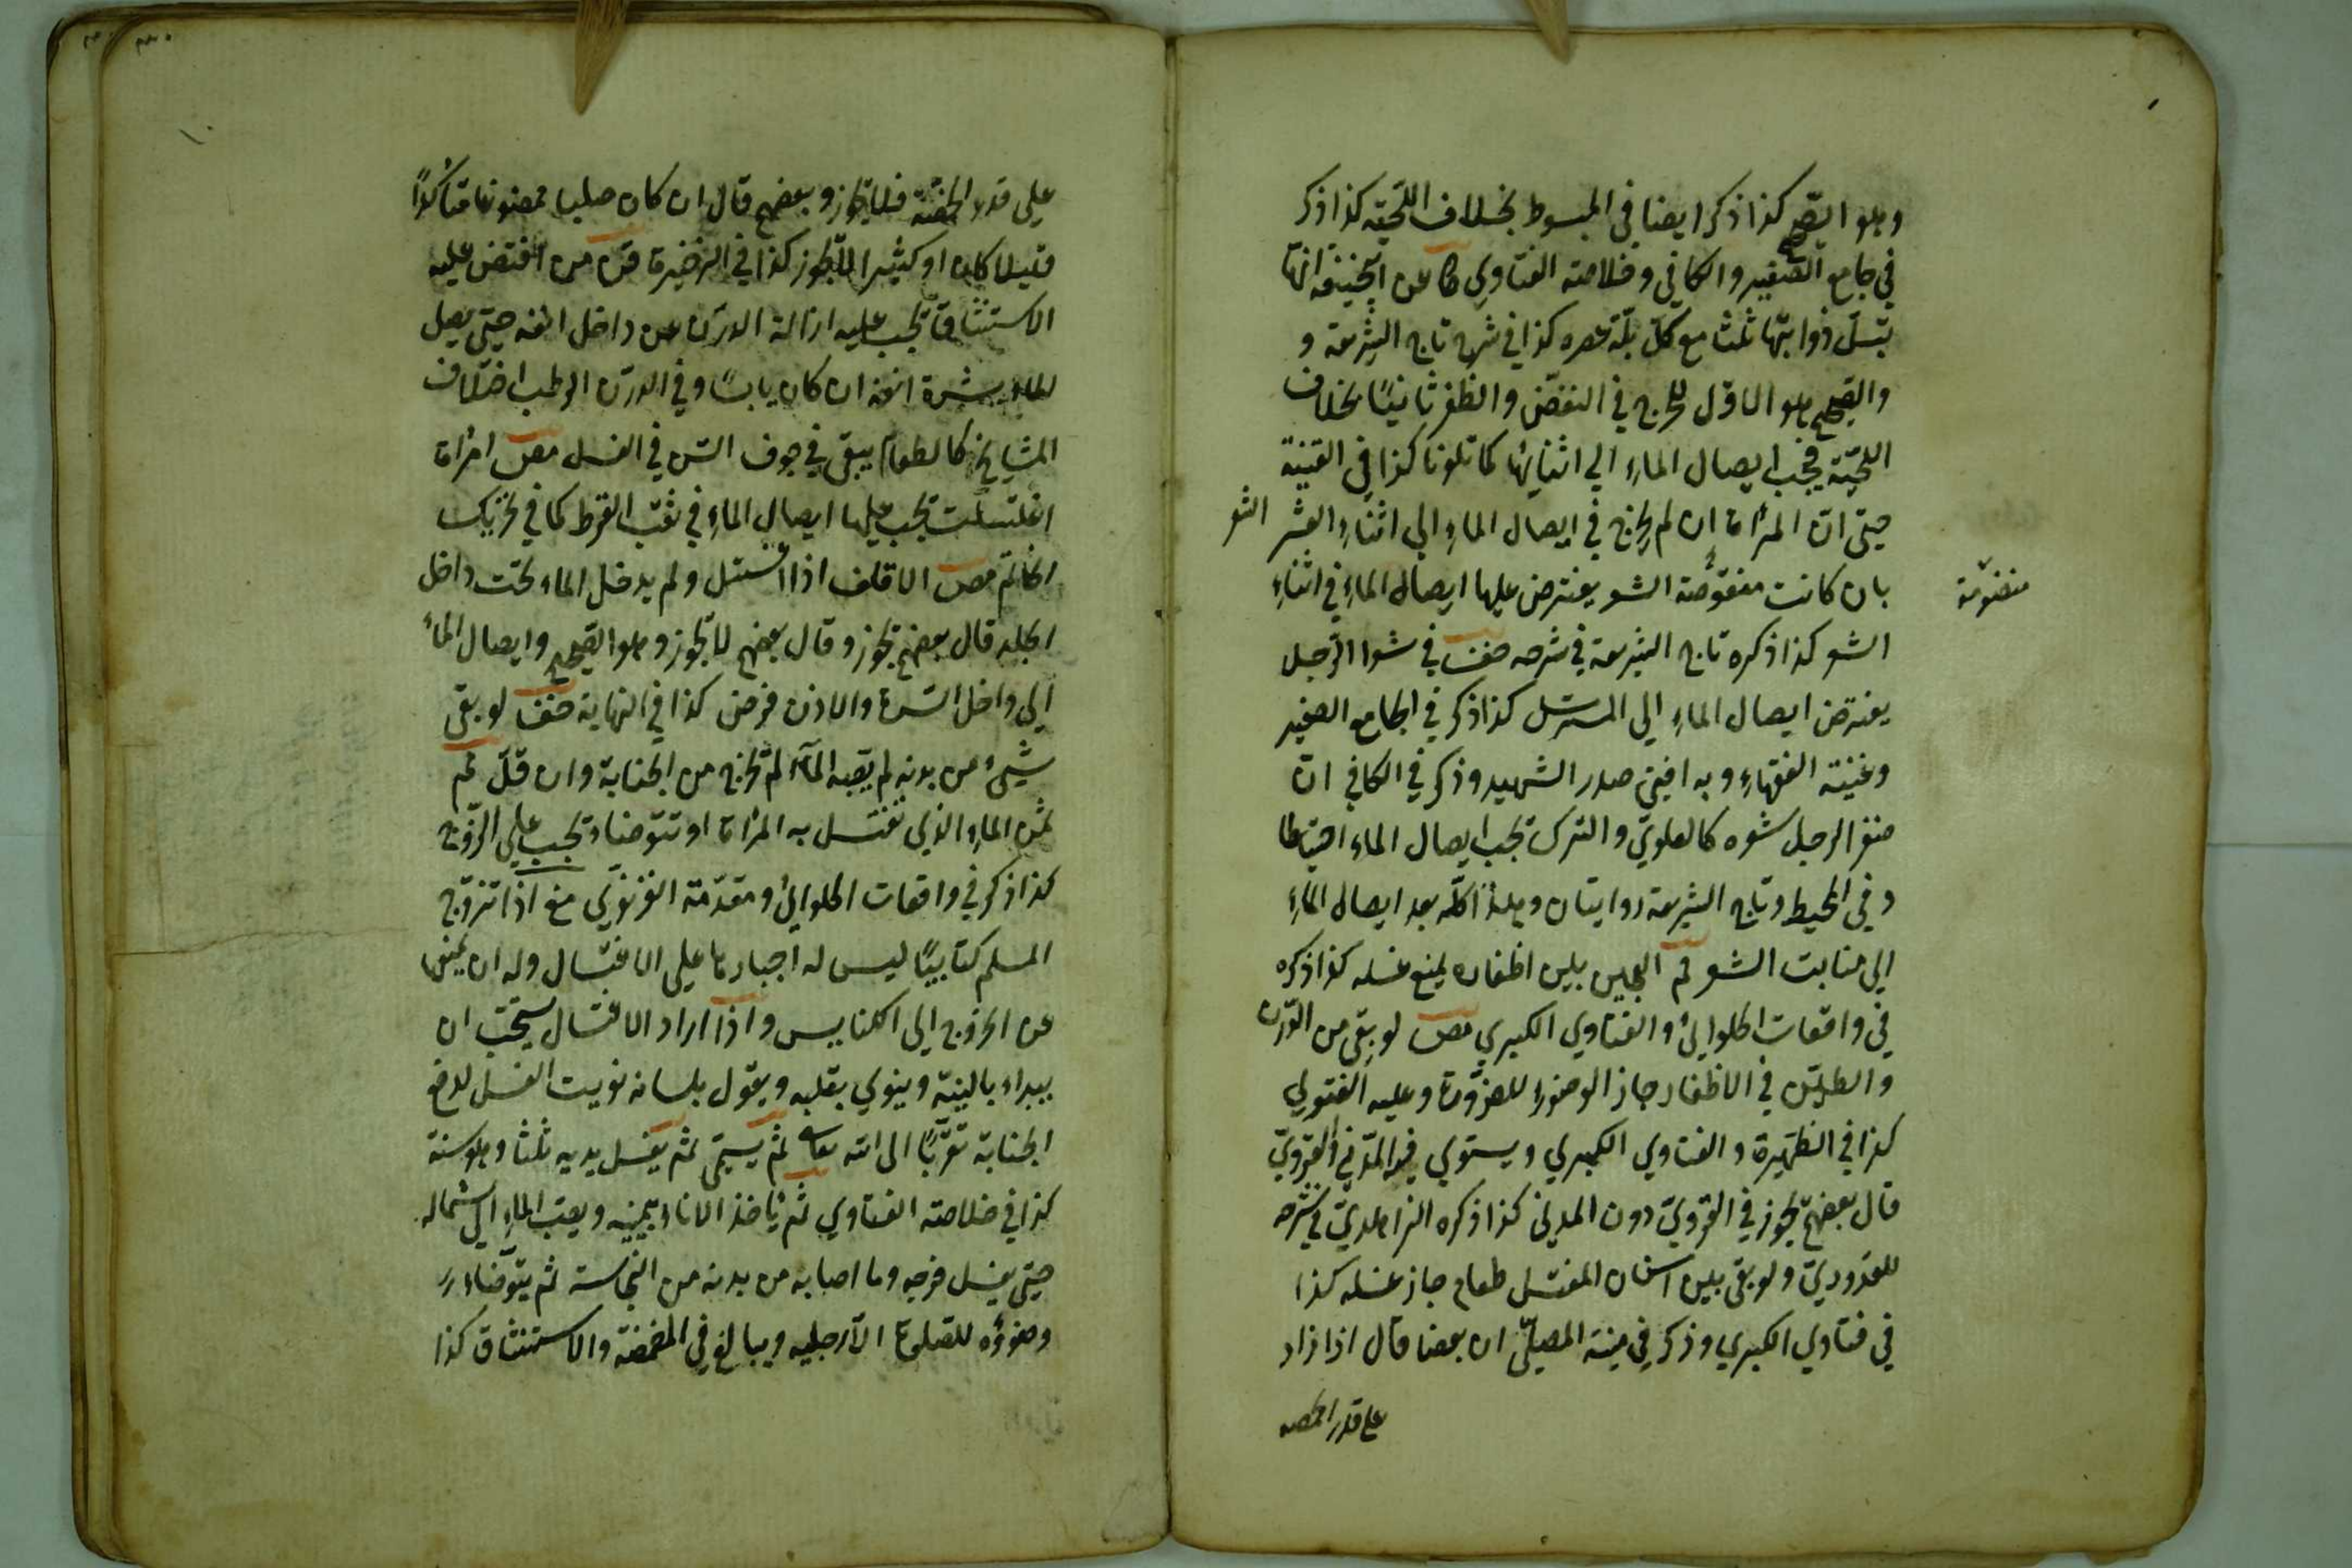 وهو الصحيح كذا ذكر ايضا في المبسوط بخلاف اللحية كذا ذكر
في جامع الصغير والكافي وخلاصة الفتاوي عن ابي حنيفة انها
تبل ذوائبها ثلثا مع كل بلة عصره كذا في شرح تاج الشريعة و
والصحيح هو الاول للحرج في النقض والظفر ثانيًا بخلاف
اللحية فيجب ايصال الماء الي اثنائها كما تلونا كذا في القنية
حتي ان المرأة ان لم يحرج في ايصال الماء الي اثناء الشعر
بان كانت منقوضة الشعر يفترض عليها ايصال الماء في اثناء
منضومة
الشعر كذا ذكره تاج الشريعة في شرحه في شعر الرجل
يفترض ايصال الماء الي المسترسل كذا ذكر في الجامع الصغير
وغنية الفقهاء وبه افتي صدر الشهيد وذكر في الكافي ان
ضفر الرجل شعره كالعلوي والترك يجب ايصال الماء احتياطا
وفي المحيط وتاج الشريعة روايتان وهذا كله بعد ايصال الماء
الي منابت الشعر العجين بين اظفاره يمنع غسله كذا ذكره
في واقعات الحلوائي والفتاوي الكبري لو بقي من الدرن
والطين في الاظفار جاز الوضوء للضرورة وعليه الفتوي
كذا في الظهيرة والفتاوي الكبري ويستوي فيه المدني والقروي
قال بعضهم يجوز في القروي دون المدني كذا ذكره الزاهدي في شرحه
للقدوري ولو بقي بين اسنان المغتسل طعام جاز غسله كذا
في فتاوي الكبري وذكر في منية المصلي ان بعضا قال اذا زاد
علي قدر الحمصة
علي قدر الحمصة فلا يجوز وبعضهم قال ان كان صلبا ممضوغا متأكدًا
قليلا كان او كثيرا لا يجوز كذا في الذخيرة من افترض عليه
الاستنشاق يجب عليه ازالة الدرن عن داخل انفه حتي يصل
الماء بشرة انفه ان كان يابسًا وفي الدرن الرطب اختلاف
المشايخ كالطعام يبقي في جوف السن في الغسل امرأة
اغتسلت يجب عليها ايصال الماء في ثقب القرط كما في تحريك
الخاتم الاقلف اذا اغتسل ولم يدخل الماء تحت داخل
الجلد قال بعضهم يجوز وقال بعضهم لا يجوز وهو الصحيح وايصال الماء
الي داخل السرة والاذن فرض كذا في النهاية لو بقي
شيء من بدنه لم يصبه الماء لم يخرج من الجنابة وان قل
ثمن الماء الذي تغتسل به المرأة او تتوضاء يجب علي الزوج
كذا ذكر في واقعات الحلوائي ومقدمة الغزنوي اذا تزوج
المسلم كتابيًا ليس له اجبارها علي الاغتسال وله ان يمنعها
عن الخروج الي الكنايس واذا اراد الاغتسال يستحب ان
يبداء بالنية وينوي بقلبه ويقول بلسانه نويت الغسل لدفع
الجنابة تقربًا الى الله تعا ثم يسمي ثم يغسل يديه ثلثا وهو سنة
كذا في خلاصة الفتاوي ثم يأخذ الاناء بيمينه ويصب الماء الي شماله
حتي يغسل فرجه وما اصابه من بدنه من النجاسة ثم يتوضاء
وضوؤه للصلوة الا رجليه ويبالغ في المضمضة والاستنشاق كذا